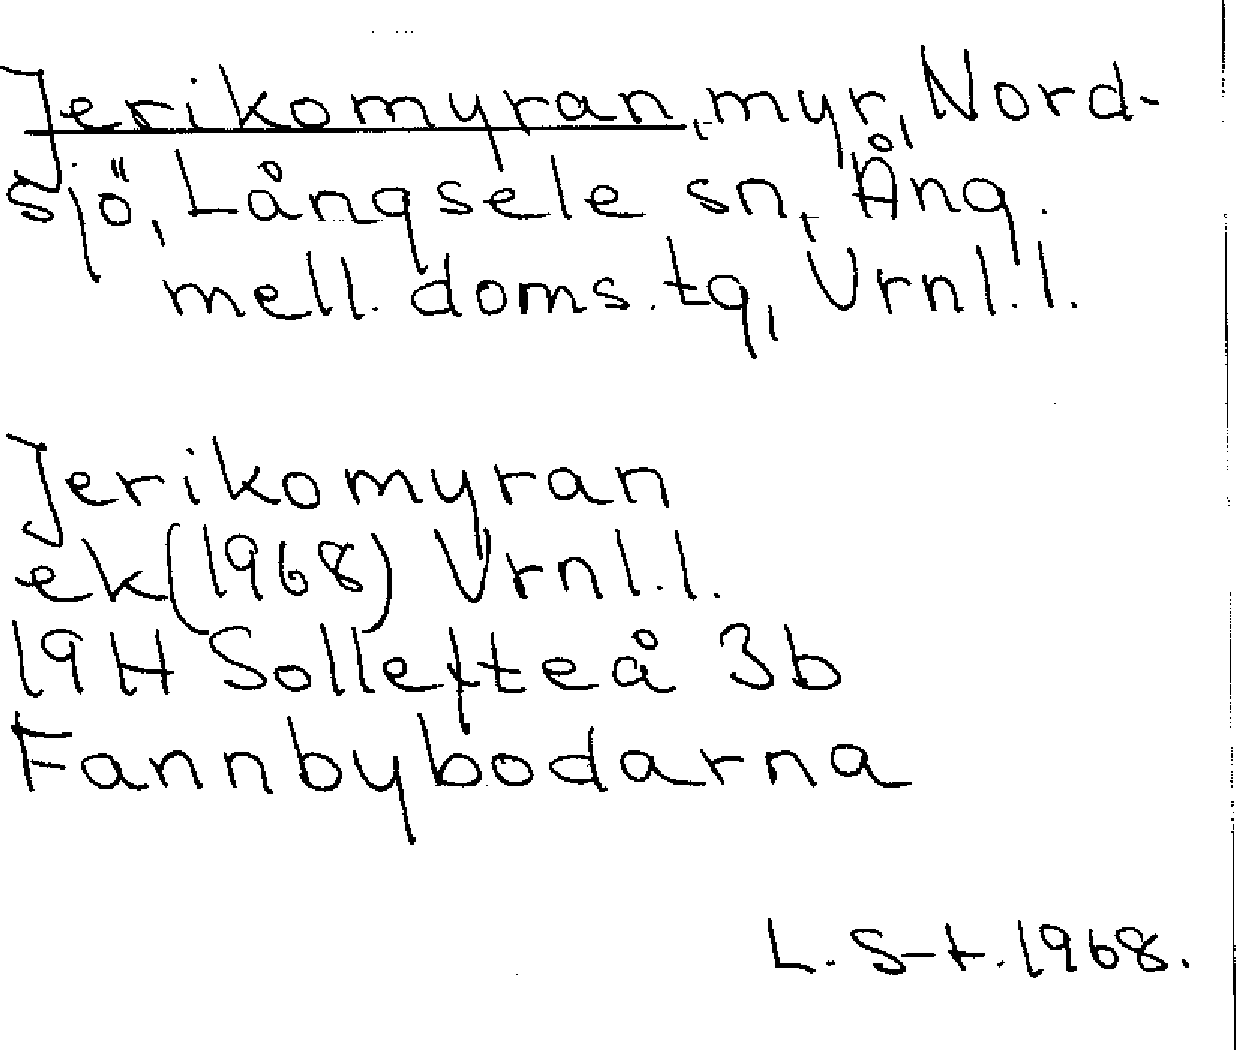 Jerikomyran, myr, Nord-
sjö, Långsele sn, Ång.
mell. doms.tg, Vrnl.l.
Jerikomyran
ek(1968) Vrnl.l.
19H Sollefteå 3b
Fannbybodarna
L. S-t. 1968.